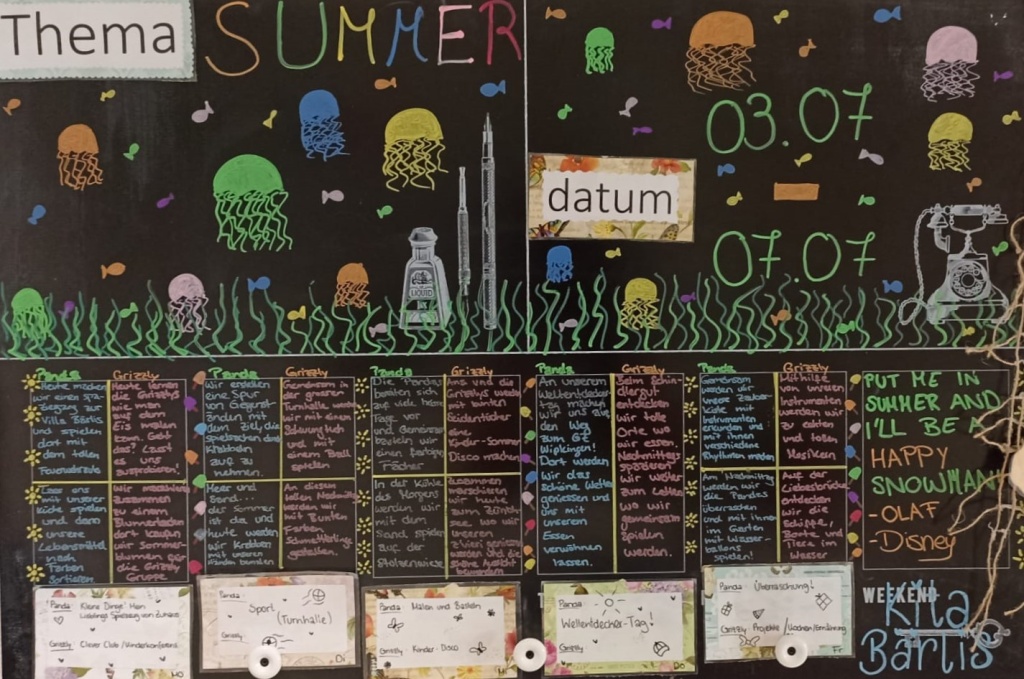 Thema
SUMMER
03.07
-
07 07
datum
LIQUID
Panda
Grizzly
Heute machen
wir einen Spa-
ziergang zur
Villa Bärtis
und spielen
dort mit
dem tollen
Feuerwehrauto
Heute lernen
die Grizzlys
wie man
auf dem
Eis malen
kann. Geht
das? Lasst
es uns
ausprobieren!
mit unserer
Küche spielen
und dann
unsere
Lebensmittel
nach
Farben
sortieren
Wir marschieren
zusammen
zu einem
Blumenladen
dort kaufen
wir Sommer
blumen für
die Grizzly
Gruppe
Panda
Grizzly
Wir erstellen
eine Spur
von Gegenst-
änden mit
dem Ziel, die
krabbeln
auf zu
nehmen.
Gemeinsam in
der grossen
Turnhalle wollen
wir mit einem
Schwungtuch
und mit
einem Ball
spielen
Meer und
Sand...
der Sommer
ist da und
heute werden
wir Krabben
mit unseren
Händen bemalen
An diesem
tollen Nachmittag
werden wir
mit Bunten
Farben
Schmetterlinge
gestalten.
Panda
Grizzly
Die Pandas
bereiten sich
auf viele heisse
Tage vor
und Gemeinsam
basteln wir
einen farbigen
Fächer
wir mit
Seidentücher
eine
Kinder-Sommer
Disco machen
In der Kühle
des Morgens
werden wir
mit dem
Sand spielen
auf der
Stolzenwiese
Zusammen
marschieren
wir heute
zum Zürich-
see wo wir
unser
Zvieri geniessen
werden und die
schöne Aussicht
bewundern
Panda
Grizzly
An unserem
Weltentdecker-
Tag machen
wir uns auf
den Weg
zum GZ
Wipkingen!
Dort werden
wir das
schöne Wetter
geniessen und
uns mit
unserem
Essen
verwöhnen
lassen.
Beim Schin-
dlergut
entdecken
wir tolle
Orte wo
wir essen.
Nachmittags
spazieren
wir weiter
zum Letten
wo wir
gemeinsam
Spielen
werden.
Panda
Grizzly
Gemeinsam
werden wir
unsere Zauber-
kiste mit
Instrumenten
erkunden und
mit ihnen
verschiedene
Rhythmen machen
Mithilfe
von neuen
Instrumenten
werden wir
zu echten
und tollen
Musikern
Am Nachmittag
werden wir
die Pandas
überraschen
und mit ihnen
im Garten
mit Wasser-
ballons
spielen!
Auf der
Liebesbrücke
entdecken
wir die
Schiffe,
Boote und
Tiere im
Wasser
PUT ME IN
SUMMER AND
I'LL BE A
HAPPY
SNOWMAN
-OLAF
-Disney
Panda Kleine Dinge? Mein
Lieblings Spielzeug von Zuhause
Grizzly Clever Club / Kinderkonferenz
Mo
Panda
Sport
(Turnhalle)
Grizzly
Di
Panda Malen und Basteln
Grizzly Kinder-Disco
Mi
Panda
Weltentdecker-Tag!
Grizzly
Do
Panda Überraschung!
Grizzly Projekte / Kochen/Ernährung
Fr
WEEKEND
Kita
Bärtis